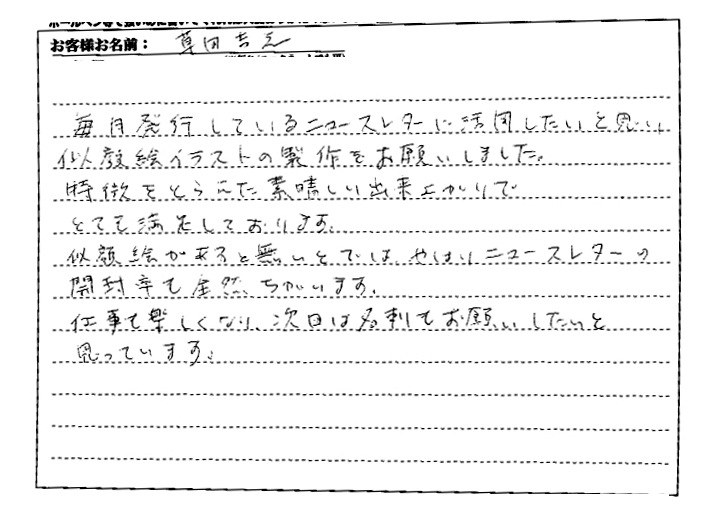 お客様お名前： 草田吉
毎月発行しているニュースレターに活用したいと思い、
似顔絵イラストの製作をお願いしました。
特徴をとらえた素晴しい出来上がりで
とても満足しております。
似顔絵があると無いとでは、やはりニュースレターの
開封率も全然ちがいます。
仕事も楽しくなり、次回は名刺もお願いしたいと
思っています。